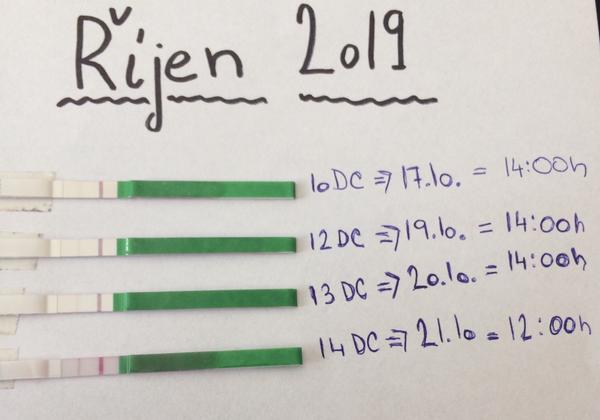 Říjen 2019
10DC => 17.10. = 14:00h
12DC => 19.10. = 14:00h
13 DC => 20.10. = 14:00h
14 DC => 21.10 = 12:00h